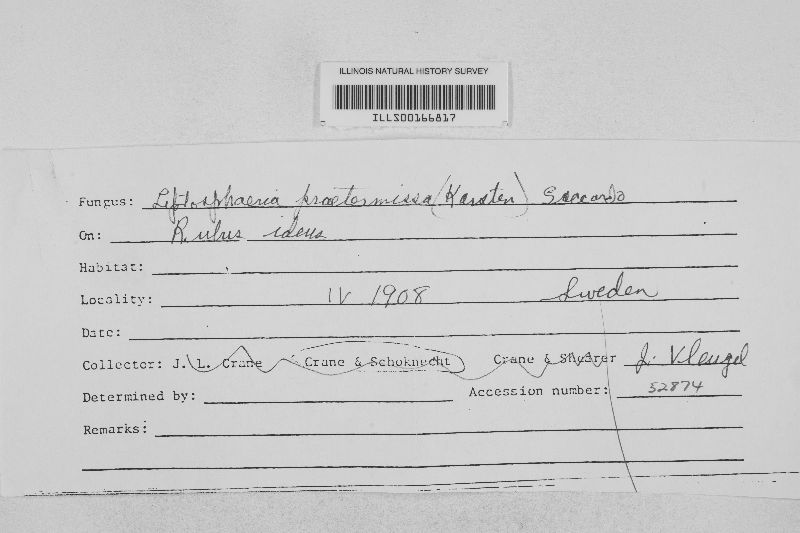 ILLINOIS NATURAL HISTORY SURVEY
ILLS00166817
Fungus: Leptosphaeria praetermissa (Karsten) Saccardo
On: Rubus ideus
Habitat:
Locality: IV 1908 Sweden
Date:
Collector: J. L. Crane Crane & Schoknecht Crane & Shearer J.
Determined by: Accession number: 52874
Remarks: